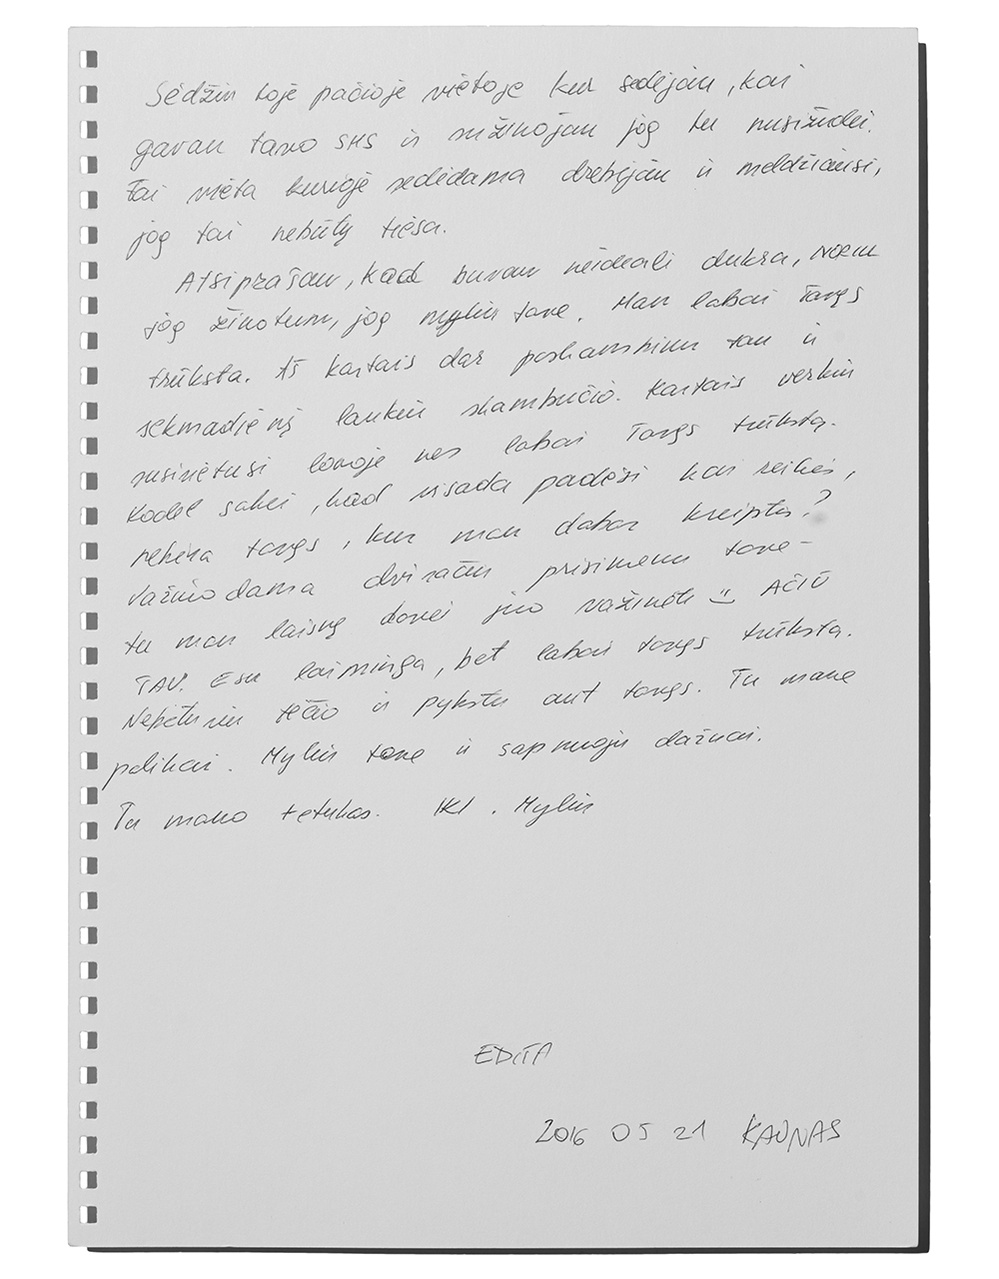 Sėdžiu toje pačioje vietoje kur sėdėjau, kai
gavau tavo SMS ir sužinojau jog tu nusižudei.
Tai vieta kurioje sėdėdama drebėjau ir meldžiausi,
jog tai nebūtų tiesa.
Atsiprašau, kad buvau neideali dukra, noriu
jog žinotum, jog myliu tave. Man labai tavęs
trūksta. Aš kartais dar paskambinu tau ir
sekmadienį laukiu skambučio. Kartais verkiu
susirietusi lovoje nes labai Tavęs trūksta.
Kodėl sakei, kad visada padėsi kai reikės,
nebėra tavęs, kur man dabar kreiptis?
Važiuodama dviračiu prisimenu tave -
tu man laisvę davei juo važinėti AČIŪ
TAU. Esu laiminga, bet labai tavęs trūksta.
Nebeturiu tėčio ir pykstu ant tavęs. Tu mane
palikai. Myliu tave ir sapnuoju dažnai.
Tu mano tėtukas. IKI. Myliu
EDITA
2016 05 21 KAUNAS